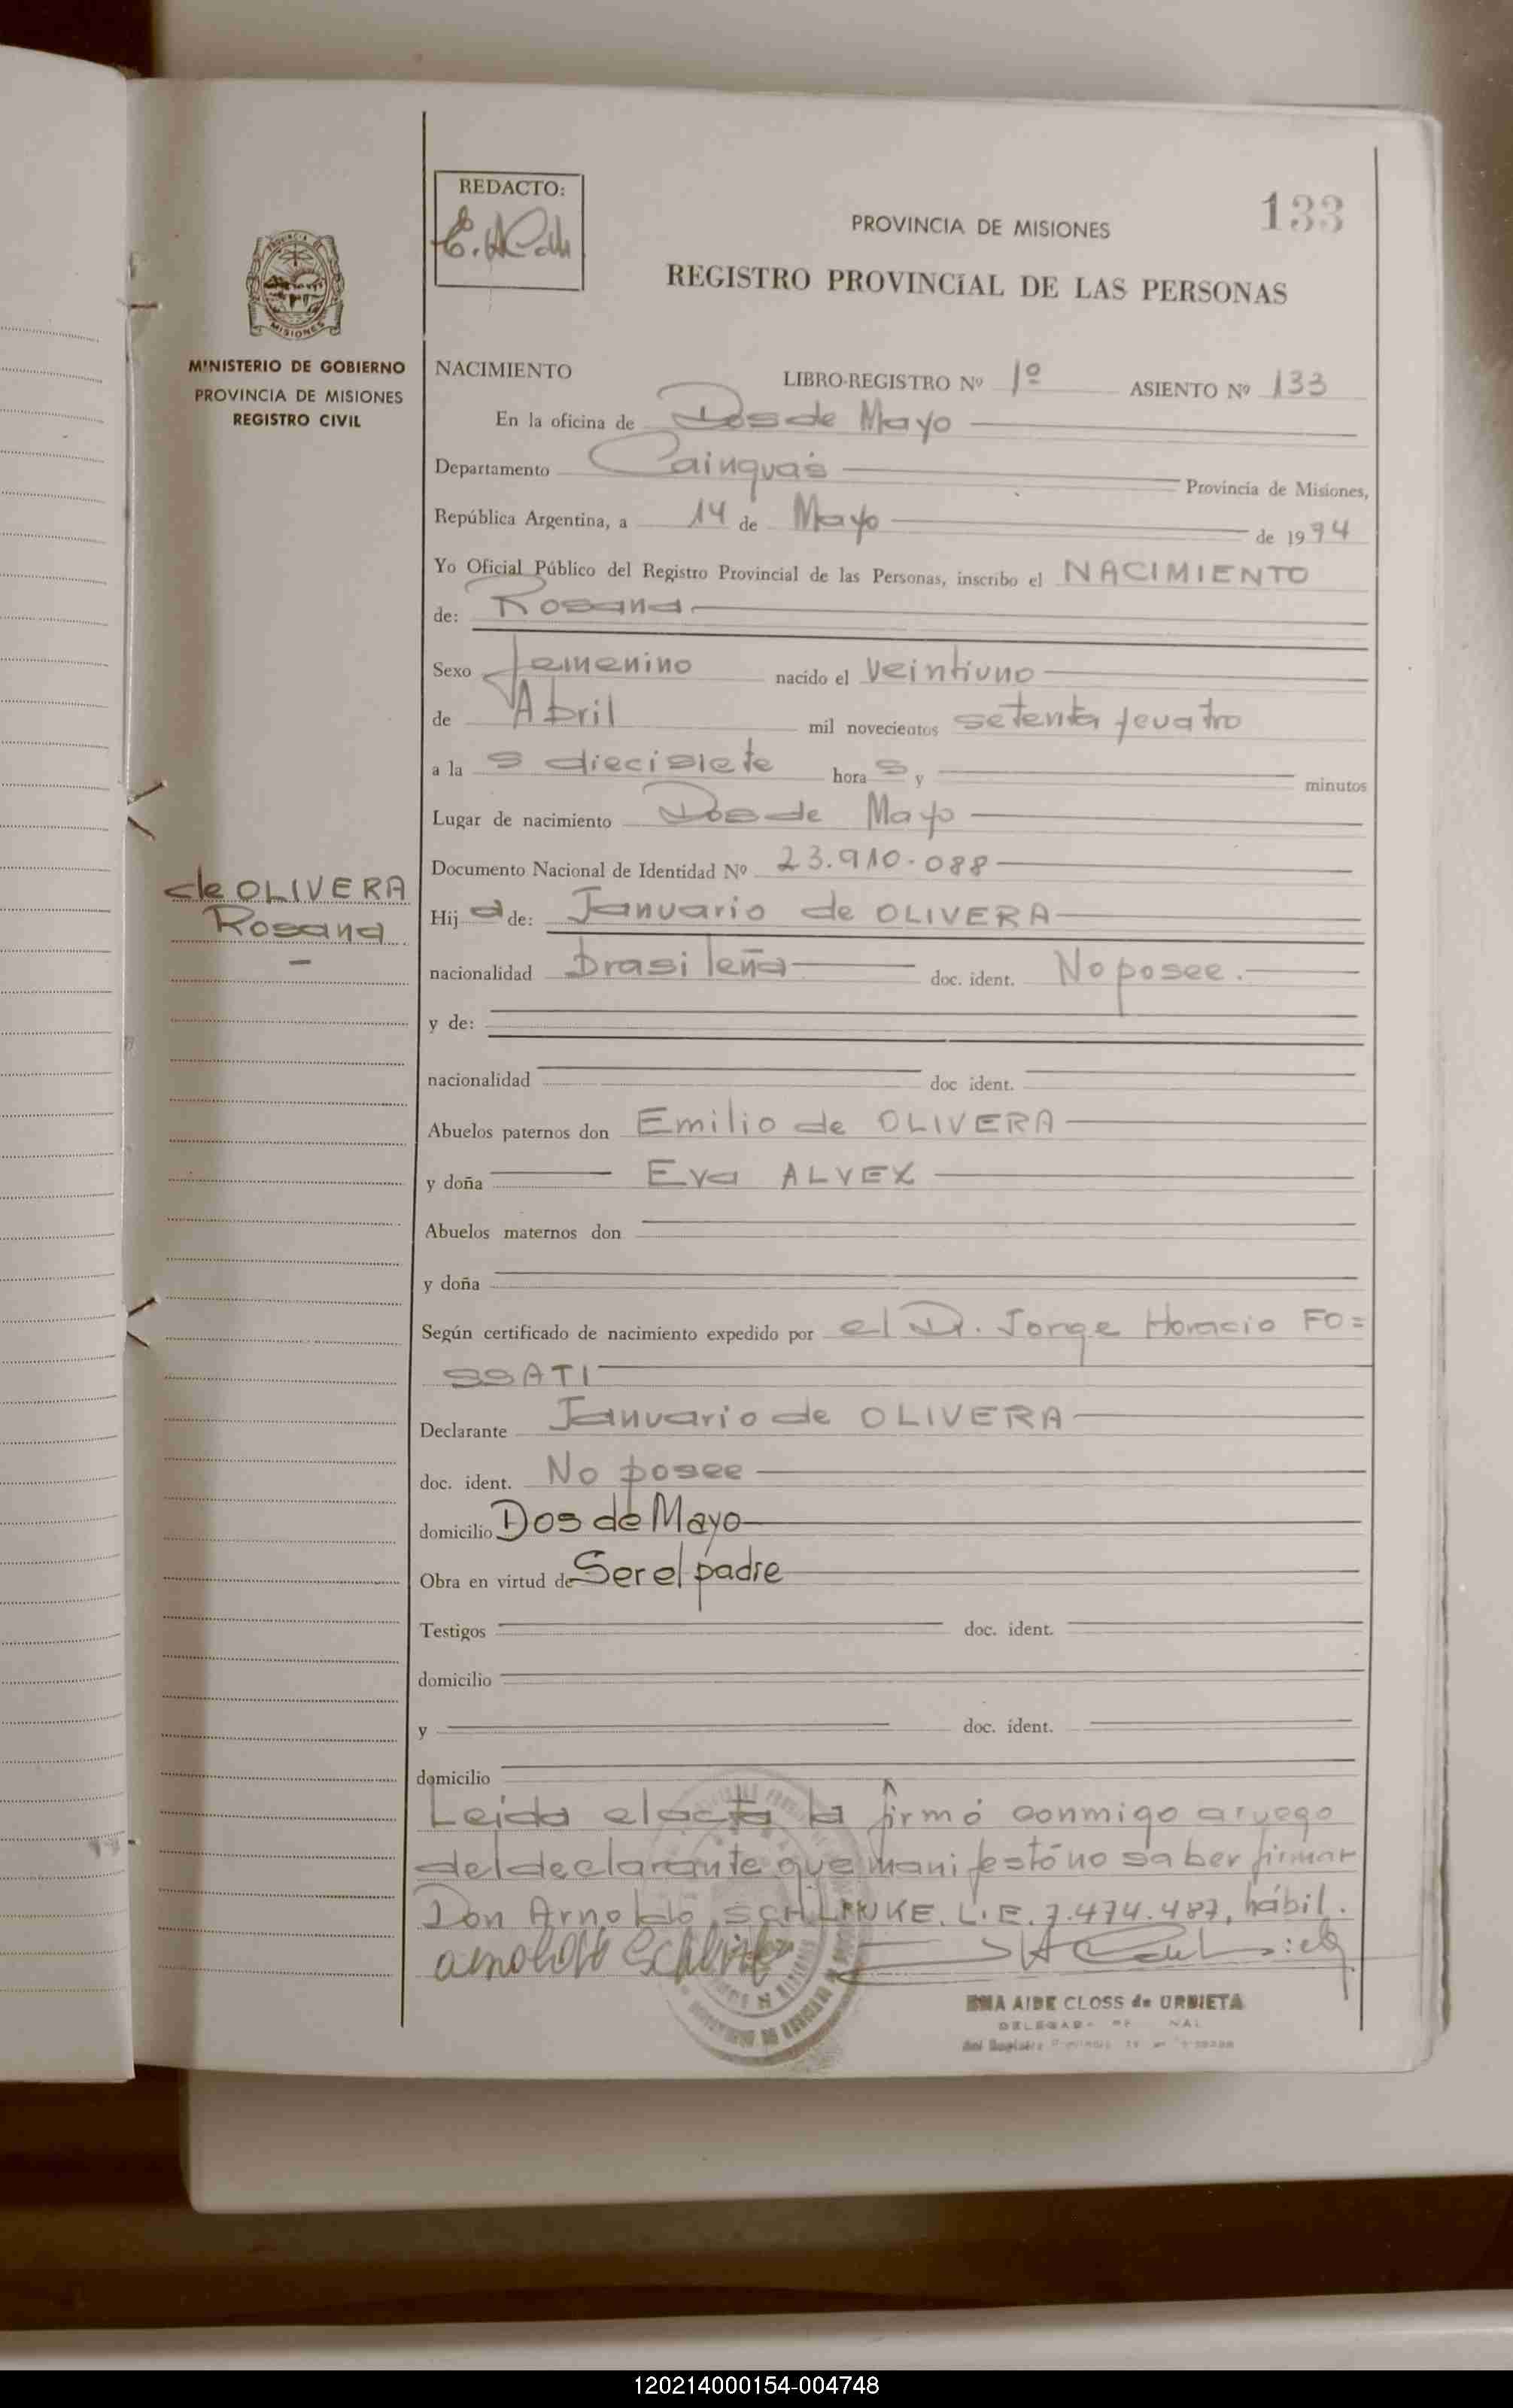 REDACTO:
133
PROVINCIA DE MISIONES
REGISTRO PROVINCIAL DE LAS PERSONAS
MISIONES
MINISTERIO DE GOBIERNO
PROVINCIA DE MISIONES
REGISTRO CIVIL
NACIMIENTO LIBRO-REGISTRO Nº 1º ASIENTO Nº 133
En la oficina de Dos de Mayo
Departamento Cainguás Provincia de Misiones,
República Argentina, a 14 de Mayo de 1974
Yo Oficial Público del Registro Provincial de las Personas, inscribo el NACIMIENTO
de: Rosana
Sexo femenino nacido el veintiuno
de Abril mil novecientos setenta y cuatro
a la s diecisiete hora s y minutos
Lugar de nacimiento Dos de Mayo
Documento Nacional de Identidad Nº 23.910.088
de OLIVERA
Rosana
Hij a de: Januario de OLIVERA
nacionalidad brasileña doc. ident. No posee.
y de:
nacionalidad doc ident.
Abuelos paternos don Emilio de OLIVERA
y doña Eva ALVEX
Abuelos maternos don
y doña
Según certificado de nacimiento expedido por el Dr. Jorge Horacio FO=
SSATI
Declarante Januario de OLIVERA
doc. ident. No posee
domicilio Dos de Mayo
Obra en virtud de Ser el padre
Testigos doc. ident.
domicilio
y doc. ident.
domicilio
Leida el acta la firmó conmigo a ruego
del declarante que manifestó no saber firmar
Don Arnoldo L.E. 7.474.487, hábil.
AIDE CLOSS de URBIETA
120214000154-004748